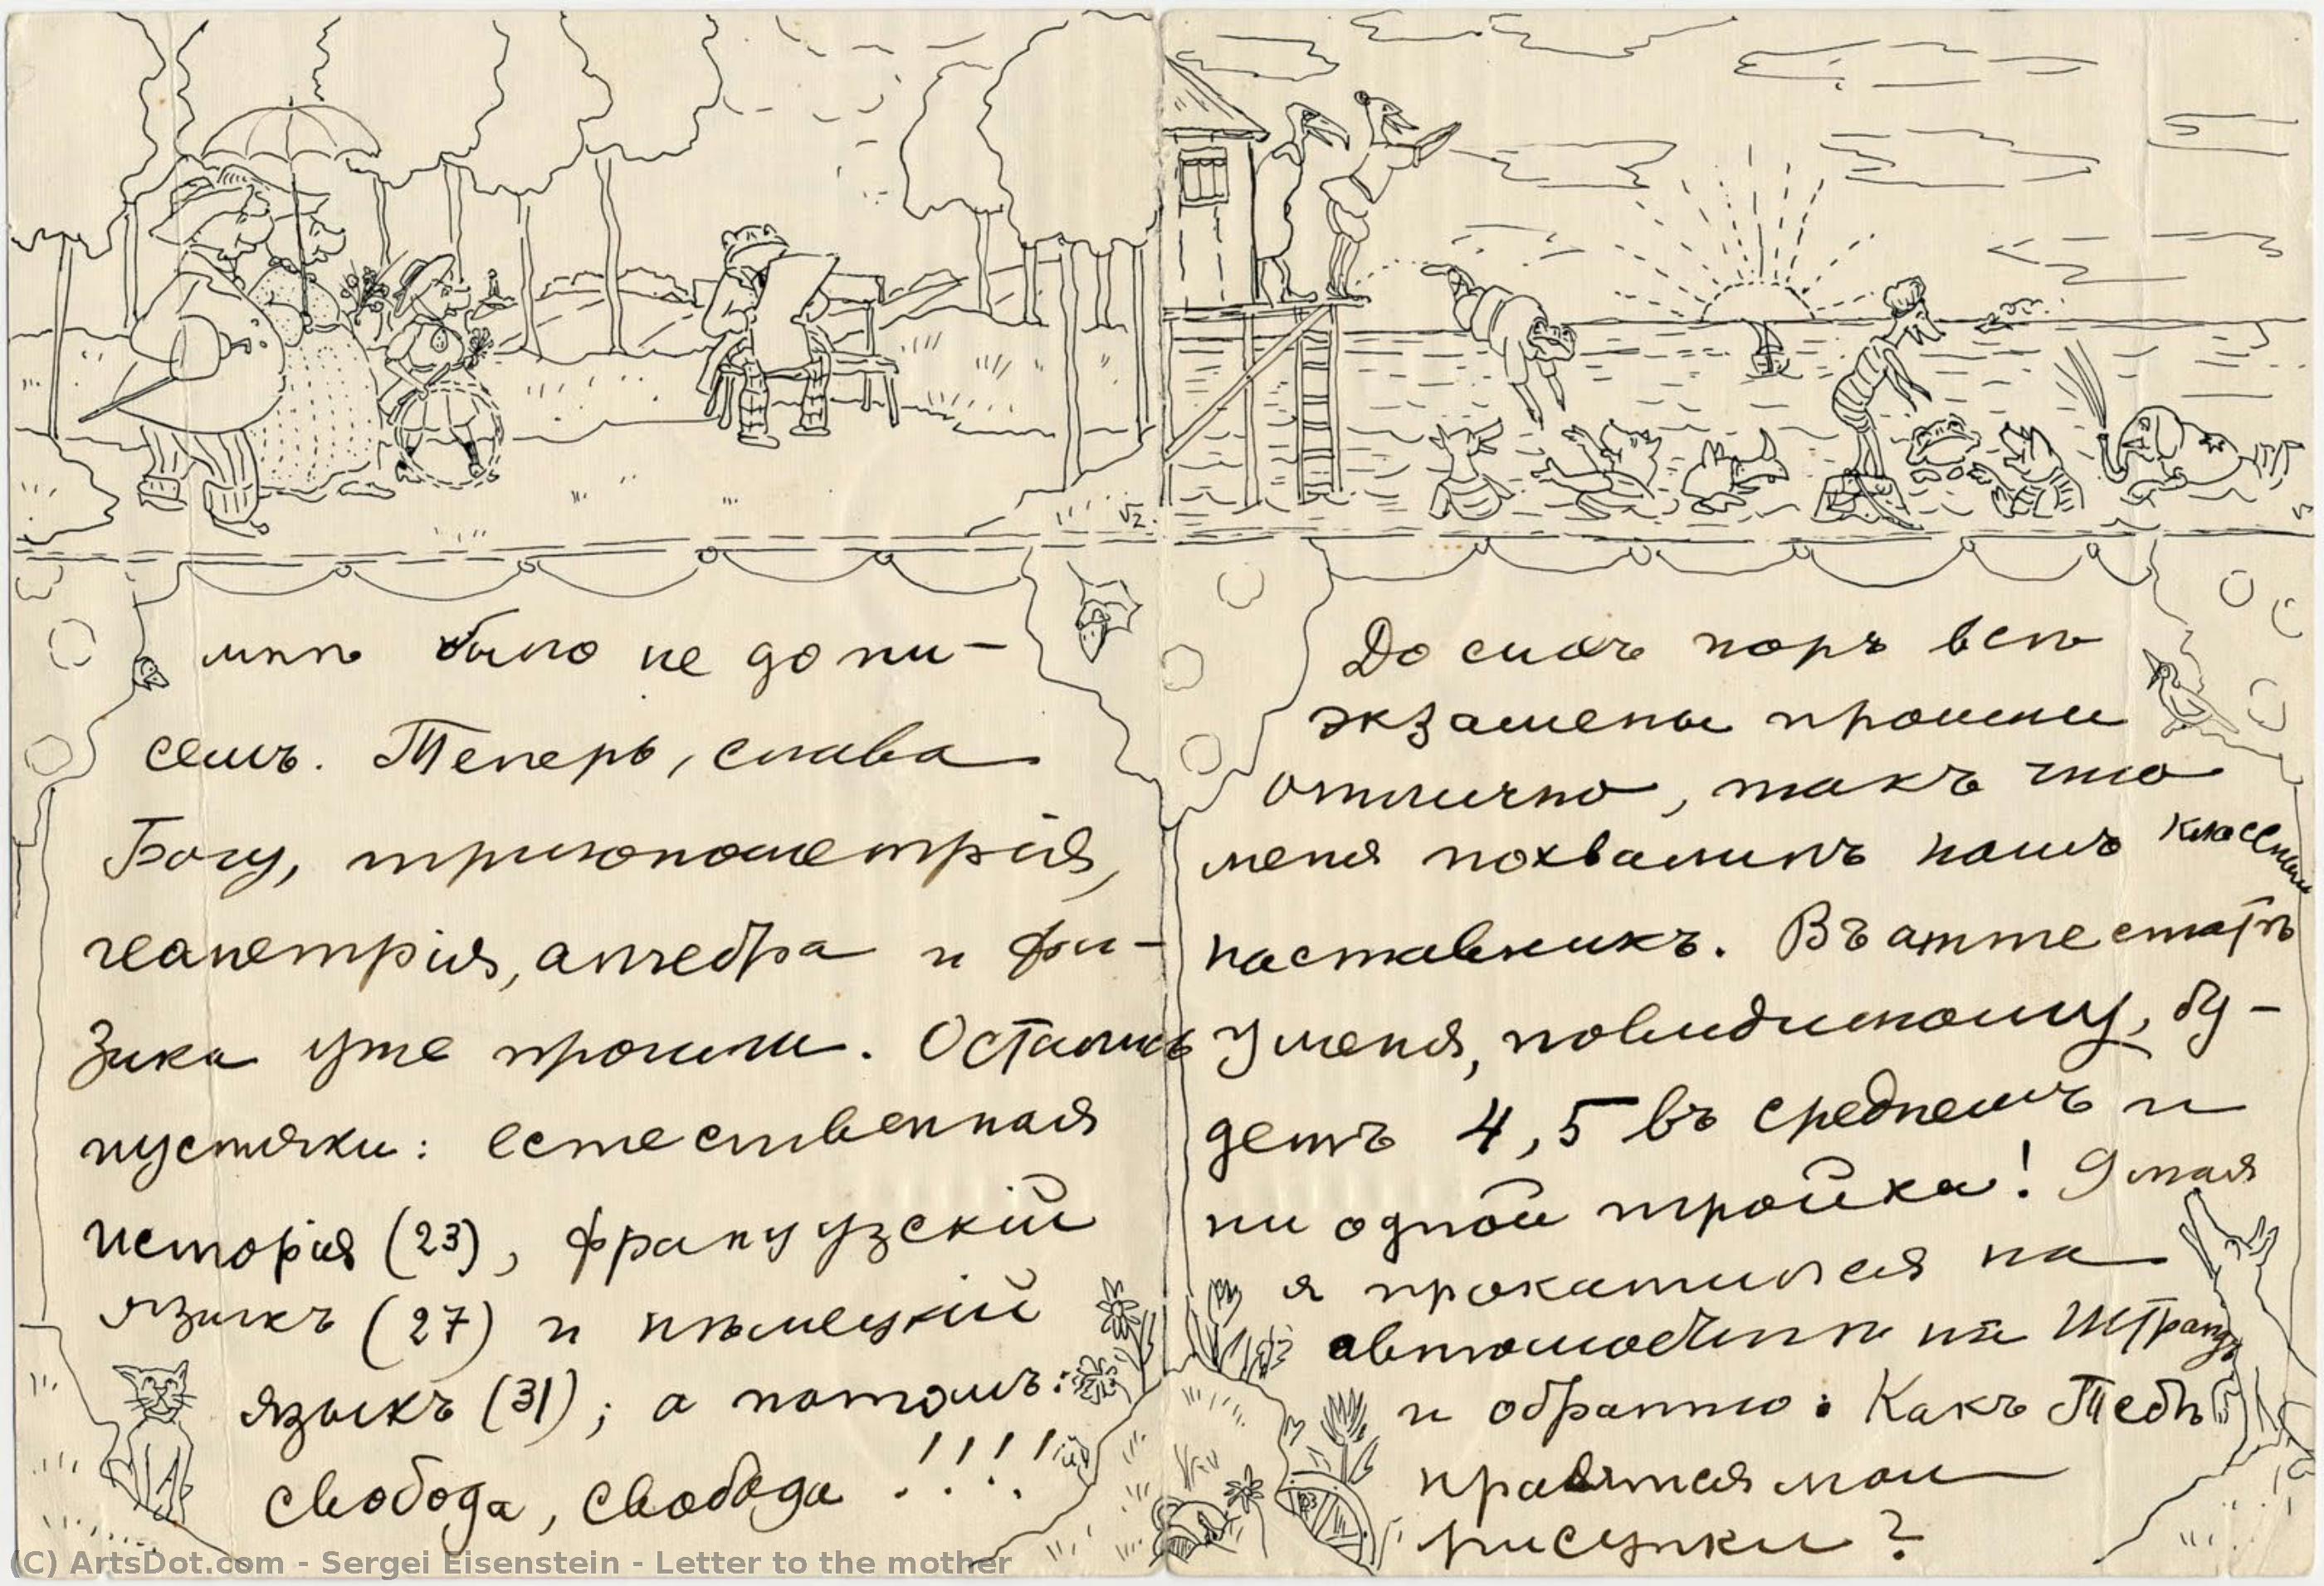 √2.
мнѣ было не до пи-
семъ. Теперь, слава
Богу, тригонометрія,
геометрія, алгебра и фи-
зика уже прошли. Остались
пустяки: естественная
исторія (23), французскій
языкъ (27) и нѣмецкій
языкъ (31); а потомъ:
свобода, свобода !!!!
До сихъ поръ всѣ
экзамены прошли
отлично, такъ что
меня похвалилъ нашъ классный
наставникъ. Въ аттестатѣ
у меня, повидимому, бу-
детъ 4,5 въ среднемъ и
ни одной тройки! 9 мая
я прокатился на
автомобилѣ на Штрандъ
и обратно. Какъ Тебѣ
нравятся мои
рисунки?
(C) ArtsDot.com - Sergei Eisenstein - Letter to the mother